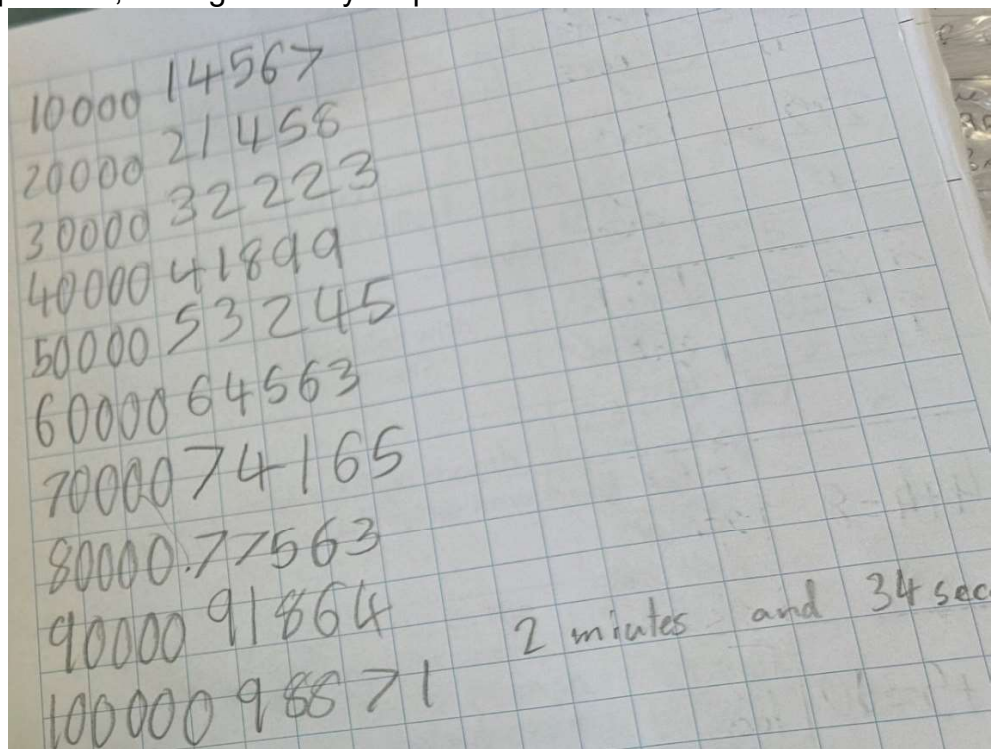 10000 14567
20000 21458
30000 32223
40000 41899
50000 53245
60000 64563
70000 74165
80000.77563
90000 91864
2 miutes and 34 sec
100000 98871